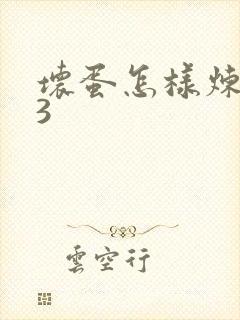 壞蛋怎樣煉
3
雲空行